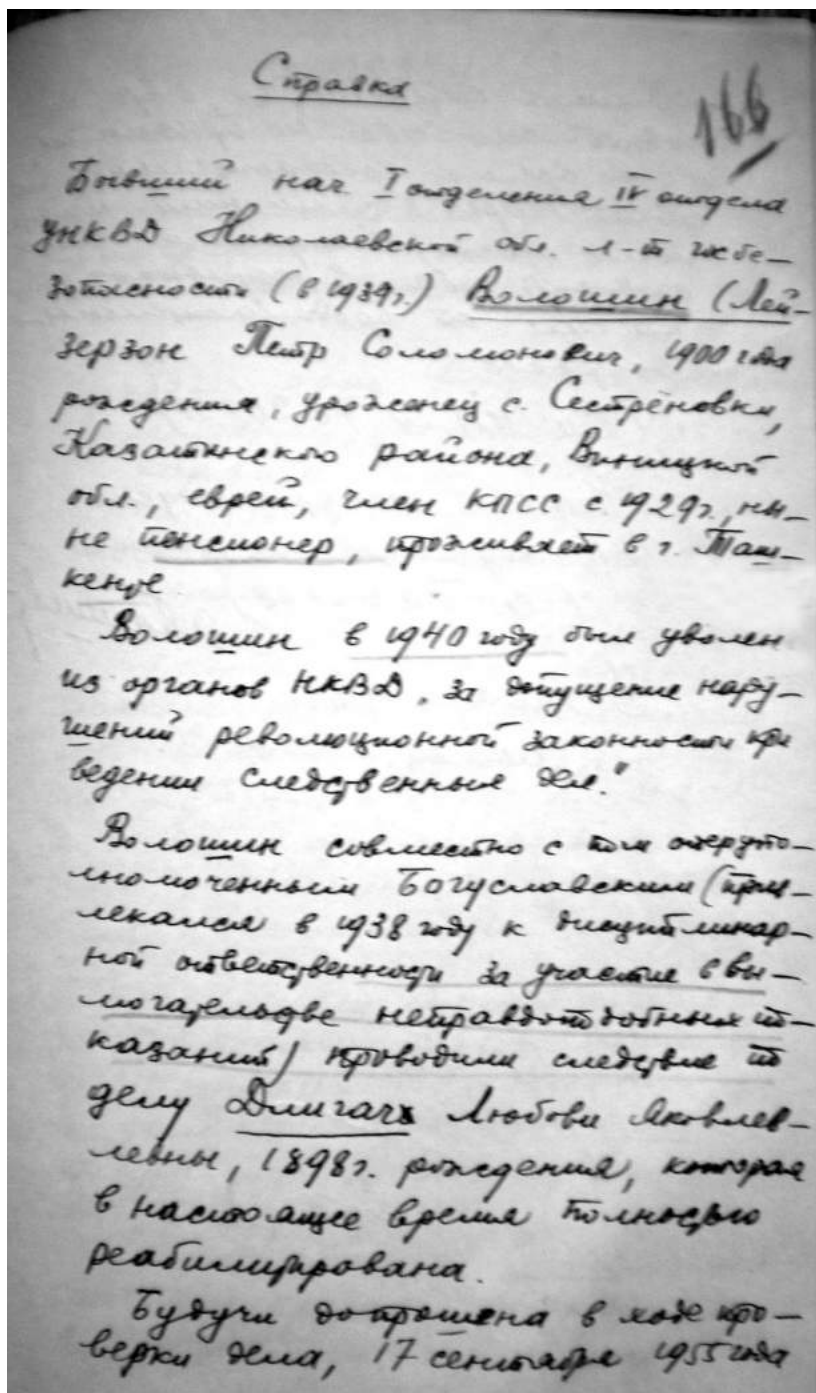 Справка
166
Бывший нач. I отделения IV отдела
УНКВД Николаевской обл. л-т госбе-
зопасности (в 1939г.) Волошин (Лей-
зерзон Петр Соломонович, 1900 года
рождения, уроженец с. Сестреновки,
Казатинского района, Виницкой
обл., еврей, член КПСС с 1929г., ны-
не пенсионер, проживает в г. Таш-
кенте
Волошин в 1940 году был уволен
из органов НКВД „за допущение нару-
шений революционной законности при
ведении следственных дел."
Волошин совместно с оперупо-
лномоченным Богуславским (прив-
лекался в 1938 году к дисциплинар-
ной ответственности за участие в вы-
могательстве неправдоподобных по-
казаний) проводили следствие по
делу Длигач Любови Яковлев-
левны, 1898г. рождения, которая
в настоящее время полностью
реабилитирована.
Будучи допрошена в ходе про-
верки дела, 17 сентября 1955 года